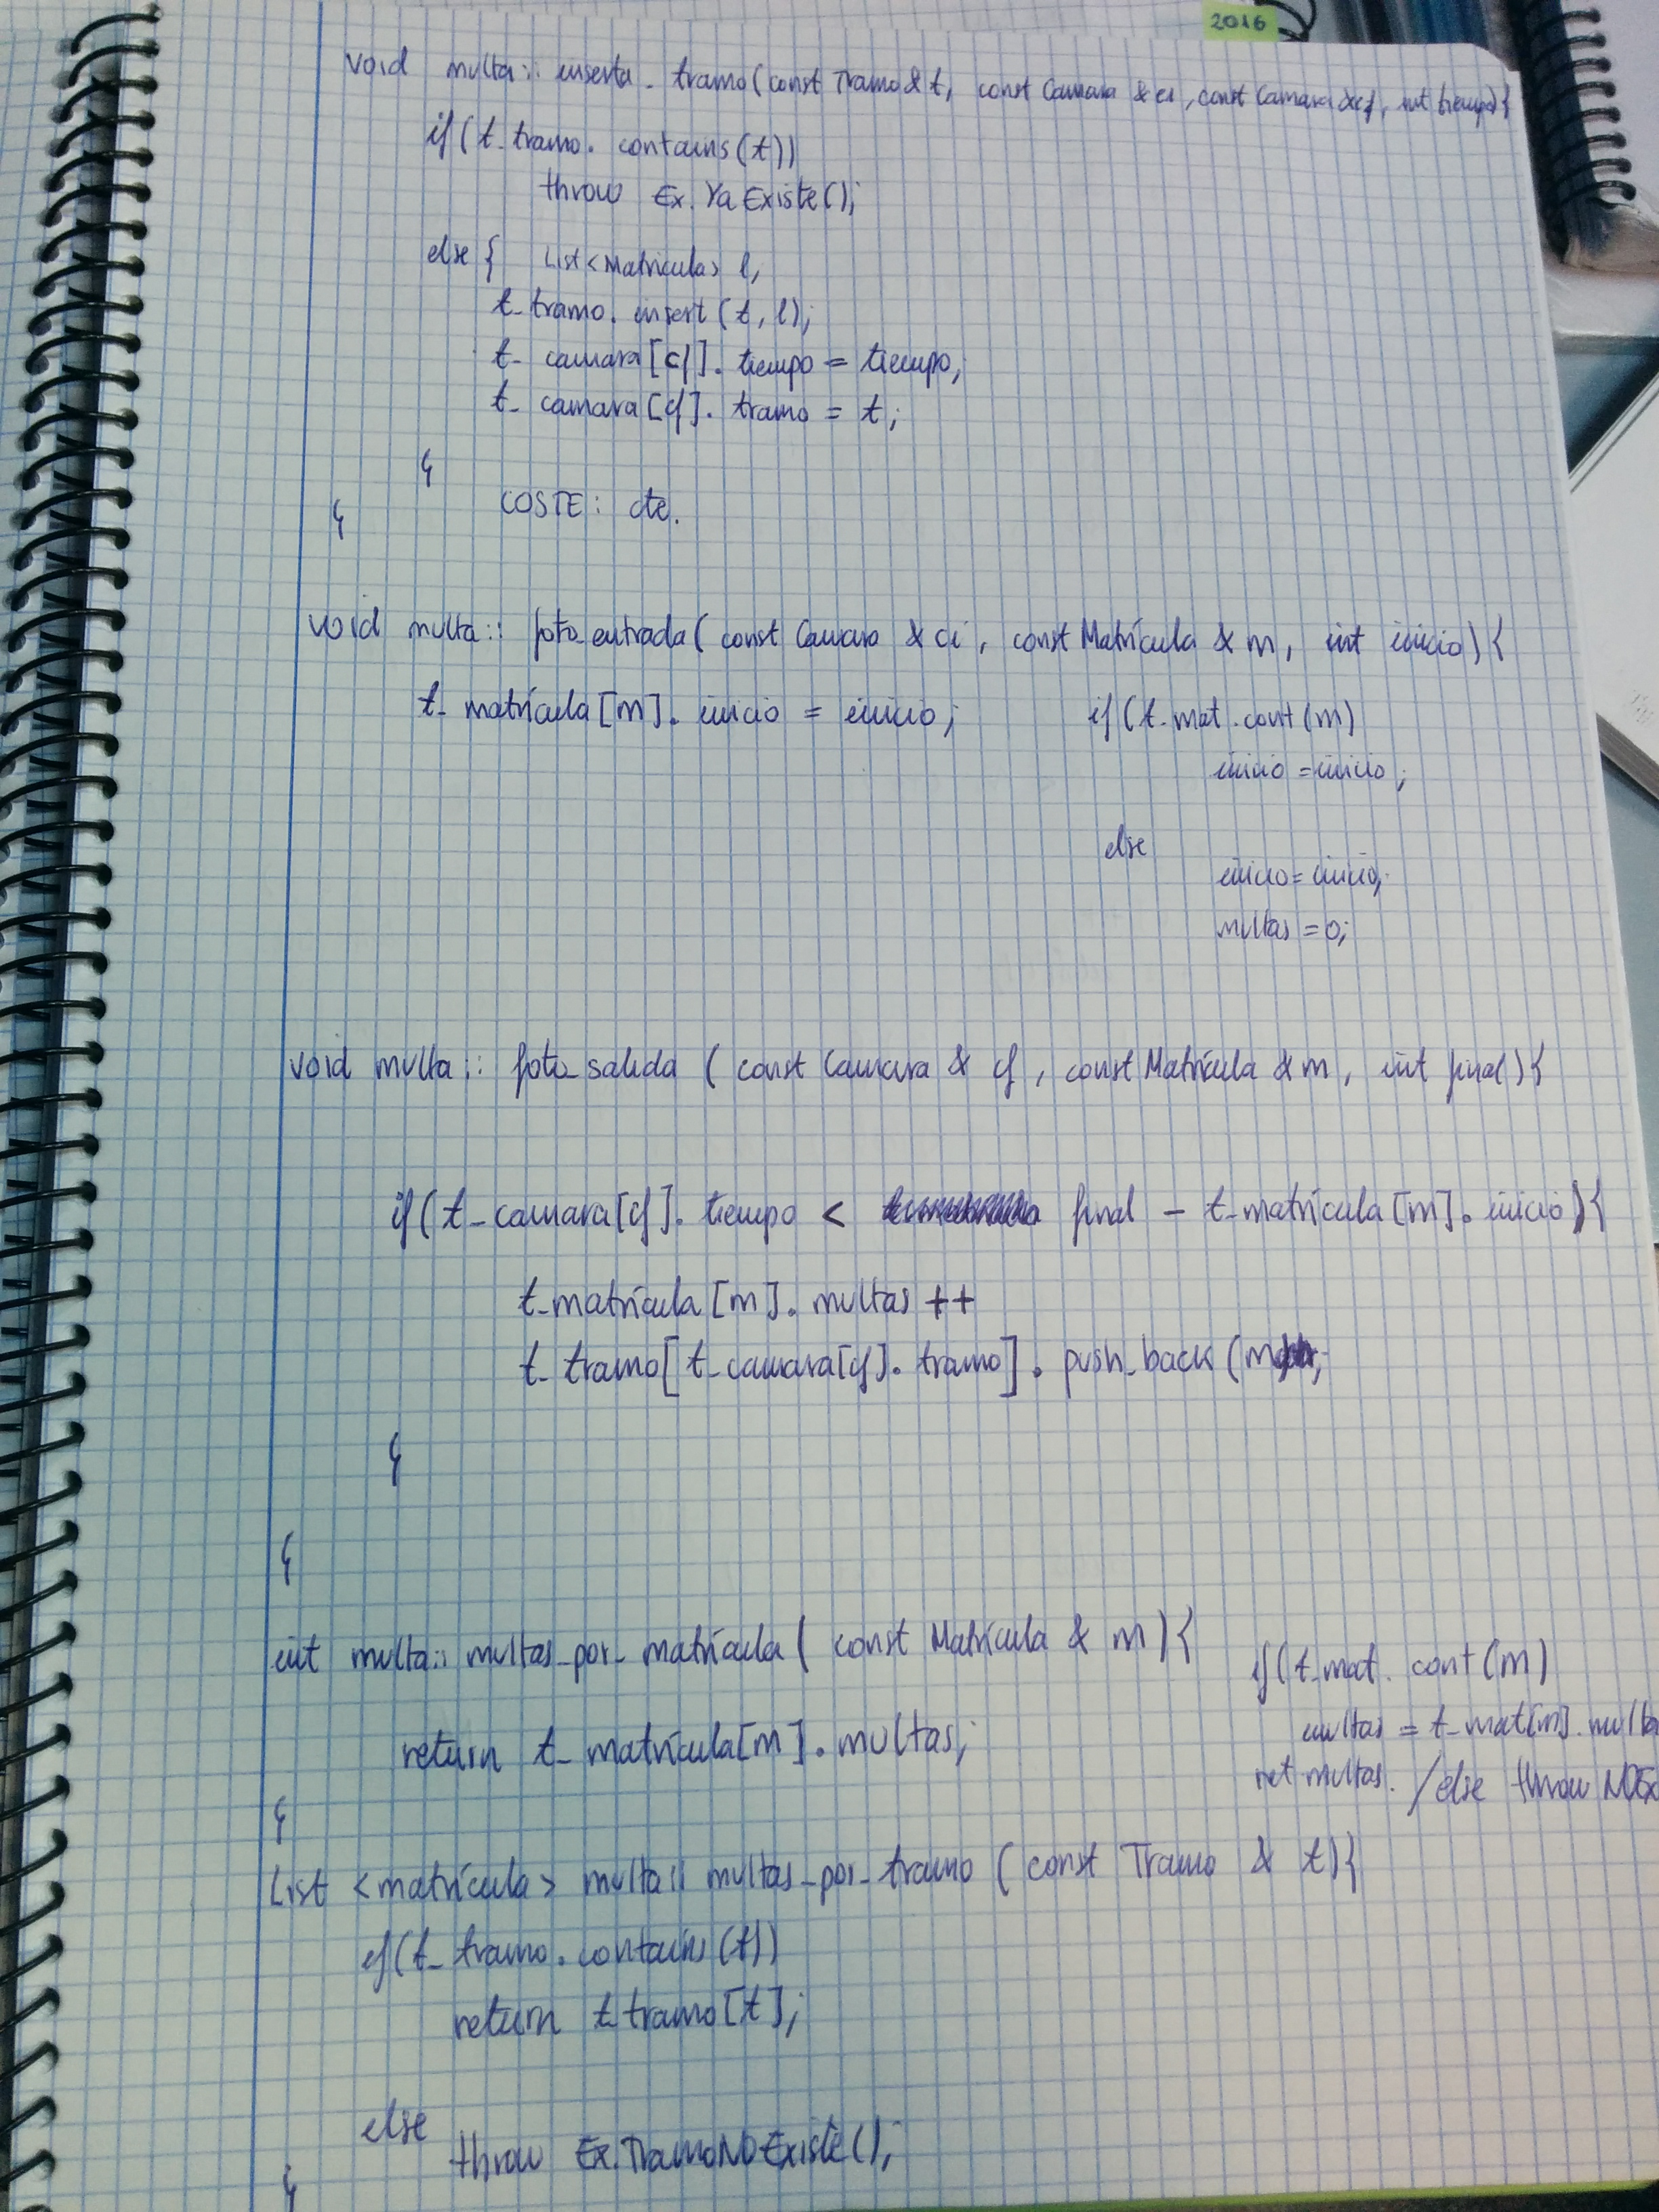 2016
void multa:: inserta_tramo(const Tramo & t, const Camara & ci, const Camara & cf, int tiempo){
if(t_tramo.contains(t))
throw Ex.YaExiste();
else { List<Matricula> l;
t_tramo.insert(t, l);
t_camara[cf].tiempo = tiempo;
t_camara[cf].tramo = t;
}
COSTE: cte.
}
void multa:: foto_entrada( const Camara & ci, const Matrícula & m, int inicio){
t_matrícula[m].inicio = inicio;
if(t_mat.cont(m)
inicio = inicio;
else
inicio = inicio;
multas = 0;
void multa:: foto_salida ( const Camara & cf, const Matrícula & m, int final){
if( t_camara[cf].tiempo < final - t_matrícula[m].inicio){
t_matrícula[m].multas ++
t_tramo[t_camara[cf].tramo].push_back(m
}
}
int multa:: multas_por_matrícula( const Matrícula & m){
return t_matrícula[m].multas;
if(t_mat. cont(m)
multas = t_mat[m].multa
ret multas. /else throw NOEx
}
List <matrícula> multa:: multas_por_tramo ( const Tramo & t){
if(t_tramo.contains(t))
return t_tramo[t];
else
throw Ex.TramoNoExiste();
}